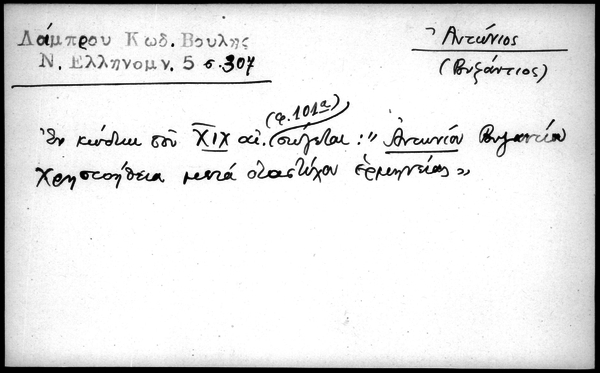 Λάμπρου Κωδ. Βουλης
Ν. Ελληνομν. 5 σ. 307
Ἀντώνιος
(Βυζάντιος)
(φ. 101α)
Ἐν κώδικι τοῦ XIX αἰ. σώζεται: "Ἀντωνίου Βυζαντίου
Χρηστοήθεια μετά ἑρμηνείας"